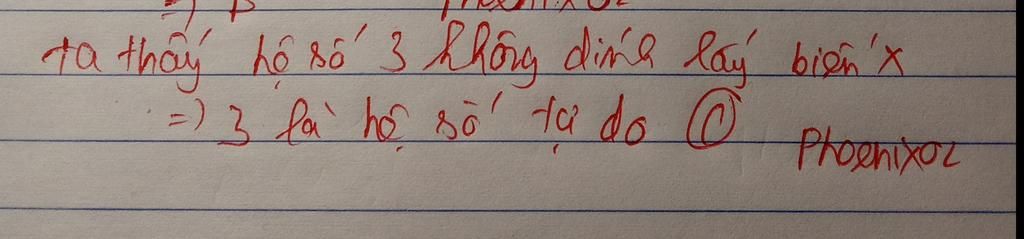 =) B PhoenixOL
ta thấy hệ số 3 không dính lấy biến x
=) 3 là hệ số tự do C
PhoenixOL